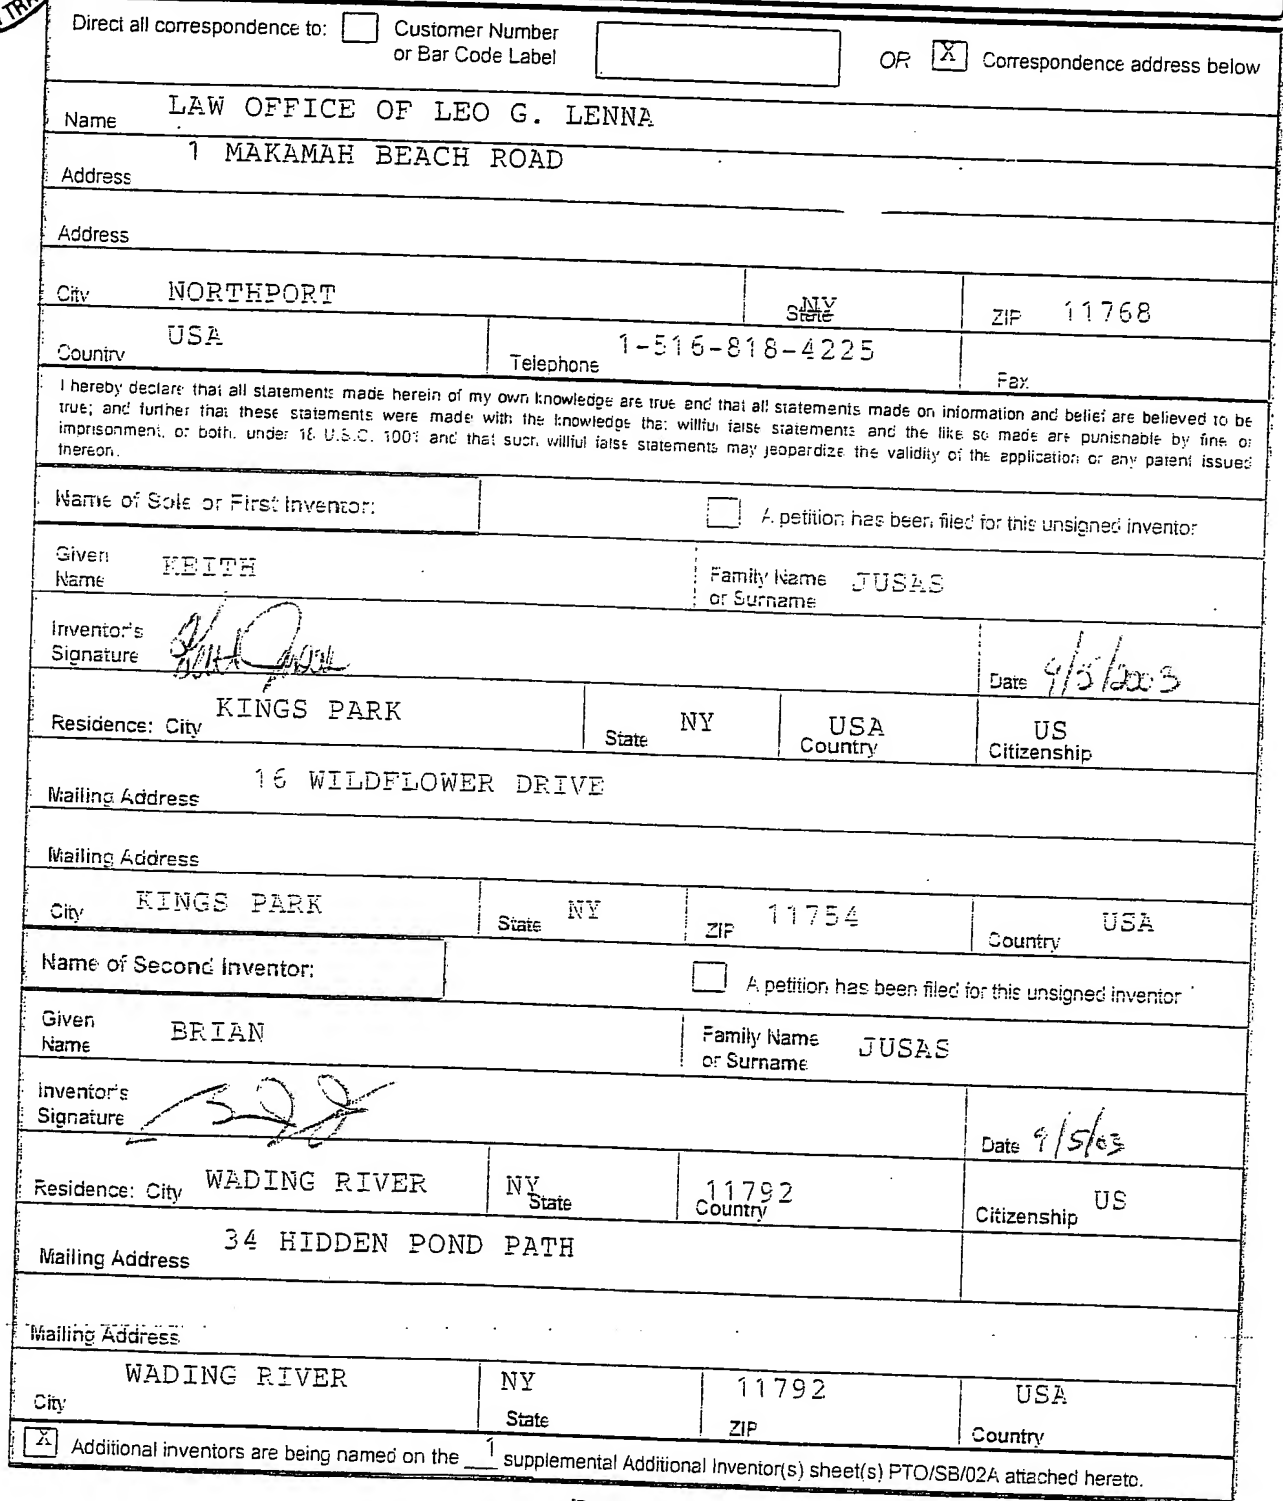 Direct all correspondence to: Customer Number OR X Correspondence address below
or Bar Code Label
Name LAW OFFICE OF LEO G. LENNA
Address 1 MAKAMAH BEACH ROAD
Address
City NORTHPORT State NY ZIP 11768
Country USA Telephone 1-516-818-4225 Fax
I hereby declare that all statements made herein of my own knowledge are true and that all statements made on information and belief are believed to be
true; and further that these statements were made with the knowledge that willful false statements and the like so made are punishable by fine or
imprisonment, or both, under 18 U.S.C. 1001 and that such willful false statements may jeopardize the validity of the application or any patent issued
thereon.
Name of Sole or First Inventor: A petition has been filed for this unsigned inventor
Given Name KEITH Family Name or Surname JUSAS
Inventor's Signature Date 9/5/2003
Residence: City KINGS PARK State NY Country USA Citizenship US
Mailing Address 16 WILDFLOWER DRIVE
Mailing Address
City KINGS PARK State NY ZIP 11754 Country USA
Name of Second Inventor: A petition has been filed for this unsigned inventor
Given Name BRIAN Family Name or Surname JUSAS
Inventor's Signature Date 9/5/03
Residence: City WADING RIVER State NY Country 11792 Citizenship US
Mailing Address 34 HIDDEN POND PATH
Mailing Address
City WADING RIVER State NY ZIP 11792 Country USA
X Additional inventors are being named on the 1 supplemental Additional Inventor(s) sheet(s) PTO/SB/02A attached hereto.